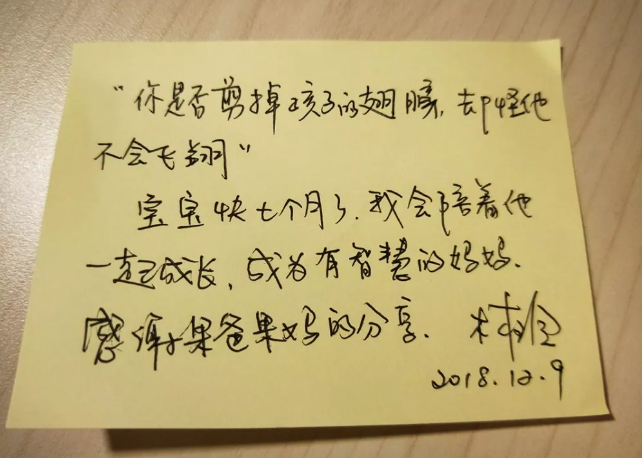 “你是否剪掉孩子的翅膀,却怪他
不会飞翔”
宝宝快七个月了.我会陪着他
一起成长、成为有智慧的妈妈.
感谢果爸果妈的分享.
2018.12.9